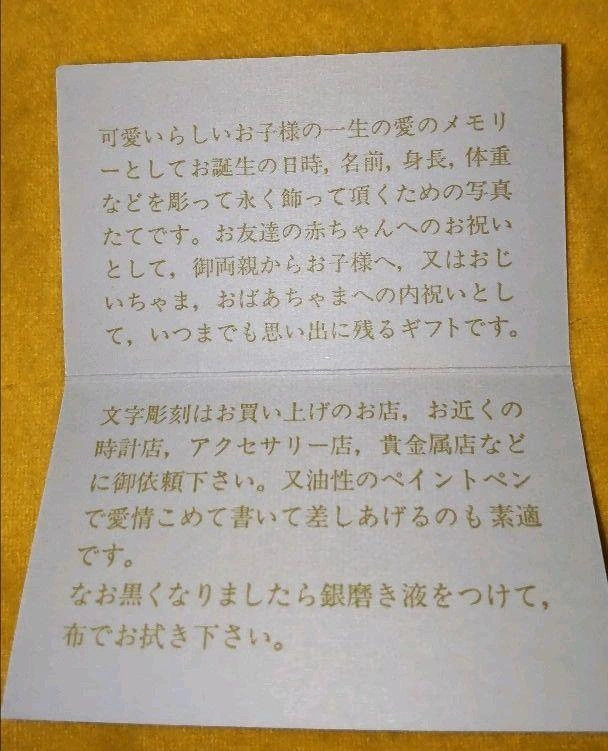 可愛いらしいお子様の一生の愛のメモリ
ーとしてお誕生の日時，名前，身長，体重
などを彫って永く飾って頂くための写真
たてです。お友達の赤ちゃんへのお祝い
として，御両親からお子様へ，又はおじ
いちゃま，おばあちゃまへの内祝いとし
て，いつまでも思い出に残るギフトです。
文字彫刻はお買い上げのお店，お近くの
時計店，アクセサリー店，貴金属店など
に御依頼下さい。又油性のペイントペン
で愛情こめて書いて差しあげるのも素適
です。
なお黒くなりましたら銀磨き液をつけて，
布でお拭き下さい。